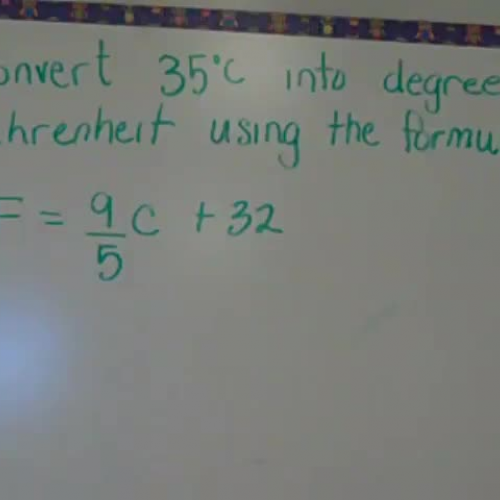 onvert 35°C into degree
ahrenheit using the formu
F = 9/5 C + 32